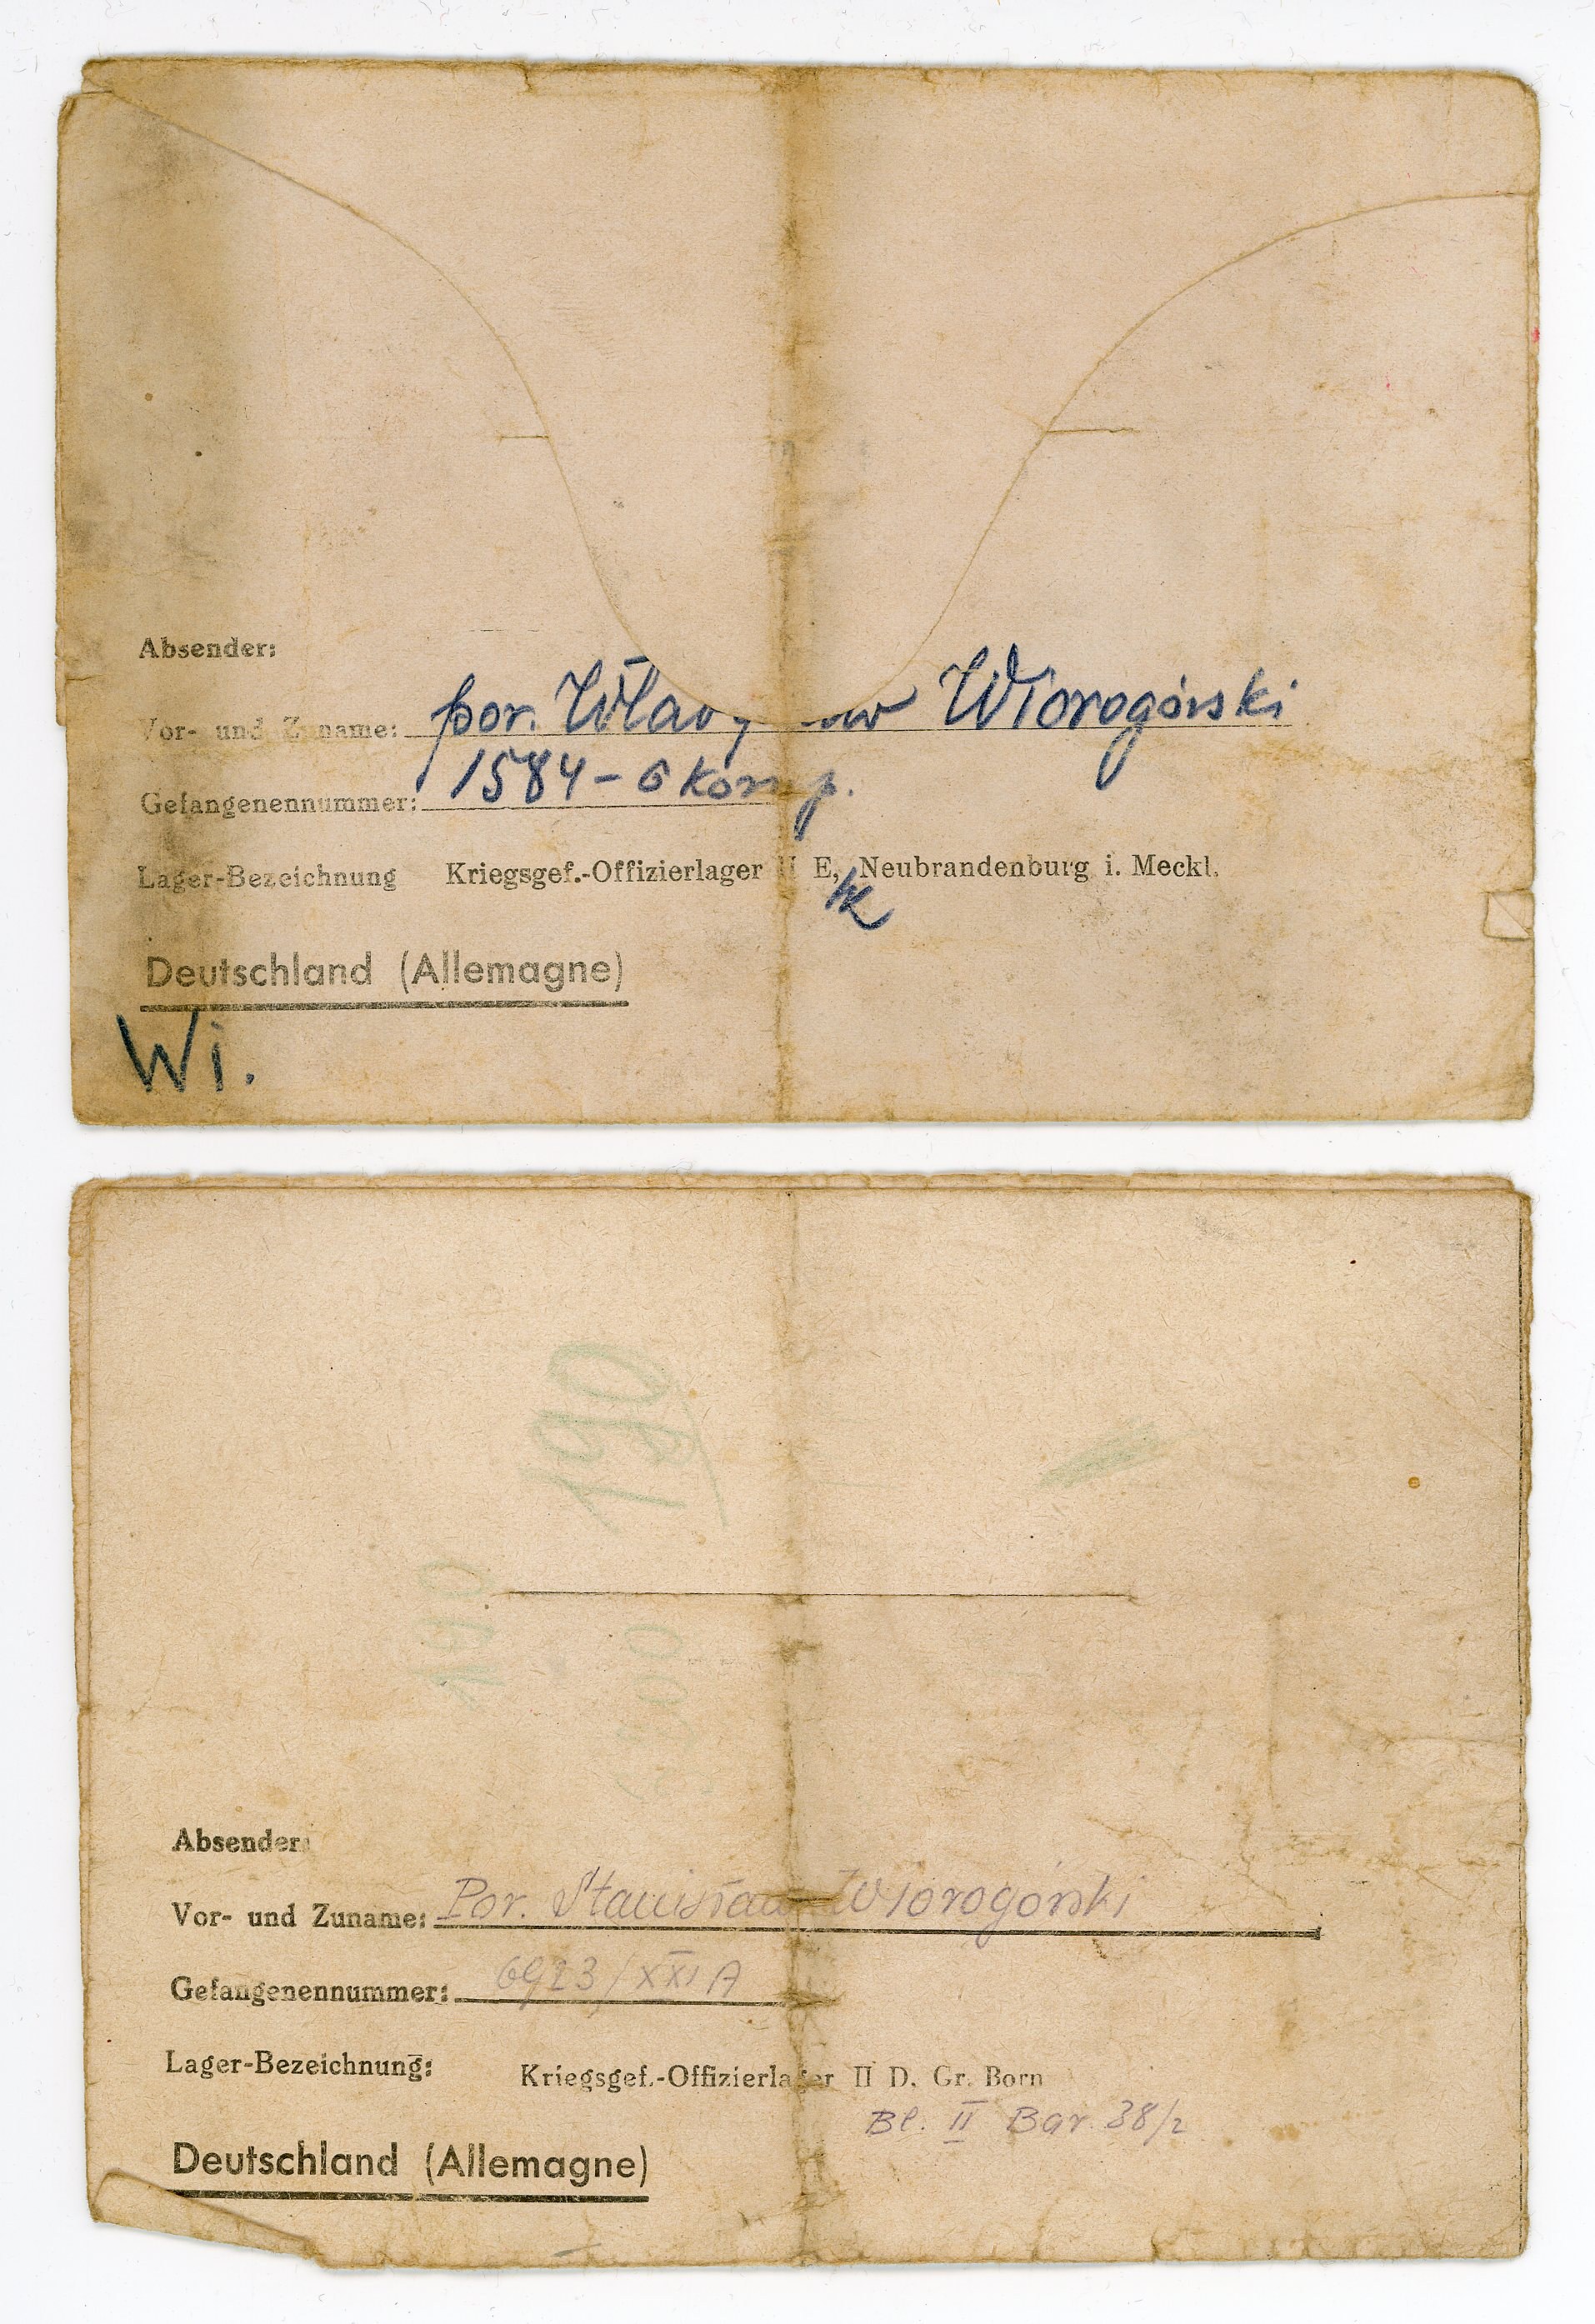 Absender:
Vor- und Zuname: por. Wiorogórski
1584 - 6 komp.
Gefangenennummer:
Lager-Bezeichnung Kriegsgef.-Offizierlager II E, Neubrandenburg i. Meckl.
Deutschland (Allemagne)
Wi.
190
190
Absender:
Vor- und Zuname: Por. Stanisław Wiorogórski
Gefangenennummer: 6923/XXI A
Lager-Bezeichnung: Kriegsgef.-Offizierlager II D. Gr. Born
Bl. II Bar. 38/2
Deutschland (Allemagne)